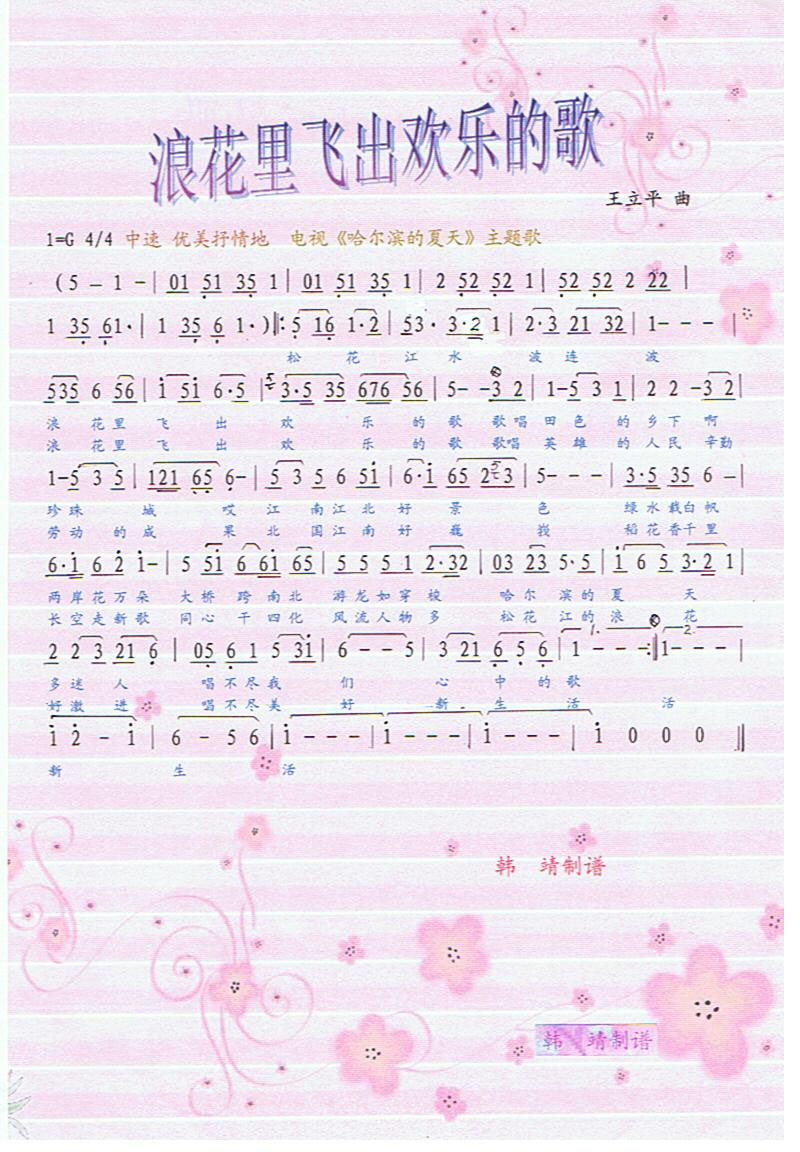 浪花里飞出欢乐的歌
王立平 曲
1=G 4/4 中速 优美抒情地 电视《哈尔滨的夏天》主题歌
(5 - 1 - | 01 51 35 1 | 01 51 35 1 | 2 52 52 1 | 52 52 2 22 |
1 35 61· | 1 35 6 1·)‖: 5 16 1·2 | 53· 3·2 1 | 2·3 21 32 | 1- - - |
松 花 江 水 波 连 波
535 6 56 | 1 51 6·5 | 3·5 35 676 56 | 5- -3 2 | 1-5 3 1 | 2 2 -3 2 |
浪 花 里 飞 出 欢 乐 的 歌 歌 唱 田 色 的 乡 下 啊
浪 花 里 飞 出 欢 乐 的 歌 歌 唱 英 雄 的 人 民 辛勤
1-5 3 5 | 121 65 6- | 5 3 5 6 51 | 6·1 65 253 | 5- - - | 3·5 35 6 - |
珍 珠 城 哎 江 南 江 北 好 景 色 绿 水 载 白 帆
劳 动 的 成 果 北 国 江 南 好 巍 峩 稻 花 香 千 里
6·1 62 1- | 5 51 6 61 65 | 5 5 5 1 2·32 | 03 23 5·5 | 1 6 5 3·2 1 |
两 岸 花 万 朵 大 桥 跨 南 北 游 龙 如 穿 梭 哈 尔 滨 的 夏 天
长 空 走 新 歌 同 心 干 四 化 风 流 人 物 多 松 花 江 的 浪 花
2 2 3 21 6 | 05 6 1 5 31 | 6 - - 5 | 3 21 6 5 6 | 1. 1 - - - :‖ 2. 1- - - |
多 迷 人 唱 不 尽 我 们 心 中 的 歌
好 激 进 唱 不 尽 美 好 新 生 活 活
1 2 - 1 | 6 - 5 6 | 1 - - - | 1 - - - | 1 - - - | 1 0 0 0 ‖
新 生 活
韩 靖制谱
韩 靖制谱